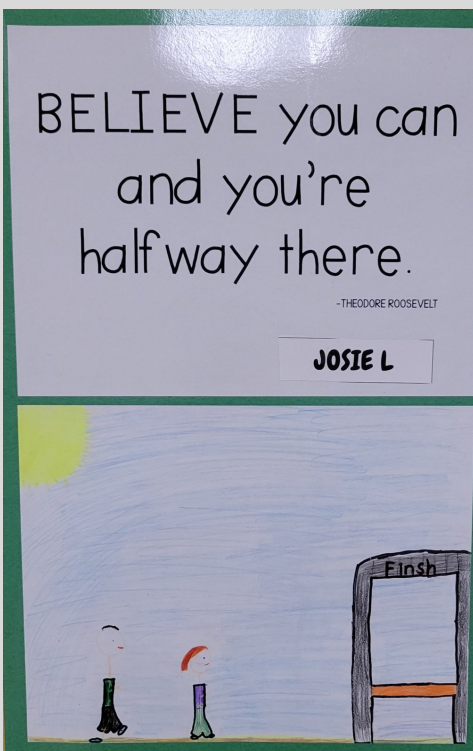 BELIEVE you can
and you're
halfway there.
-THEODORE ROOSEVELT
JOSIE L
Finsh